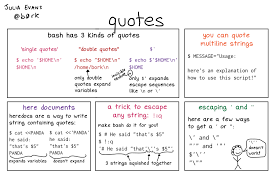 JULIA EVANS
@bork
quotes
bash has 3 kinds of quotes
'single quotes'
"double quotes"
$'
$ echo '$HOME\n'
$HOME\n
$ echo "$HOME\n"
/home/bork\n
$ echo $'$HOME\n'
$HOME
only double
quotes expand
variables
only $' expands
escape sequences
like \t or \n
you can quote
multiline strings
$ MESSAGE="Usage:
here's an explanation of
how to use this script!"
here documents
heredocs are a way to write
strings containing quotes:
$ cat <<PANDA
He said:
"that's $5"
PANDA
$ cat <<'PANDA'
he said:
"that's $5"
PANDA
expands variables
doesn't expand
a trick to escape
any string: !:q
make bash do it for you!
$ # He said "that's $5"
$ !:q
'# He said "that'\''s $5"'
3 strings squished together
escaping ' and "
here are a few ways
to get a ' or ":
\' and \"
"'" and '"'
$'\''
"\""
doesn't
work!